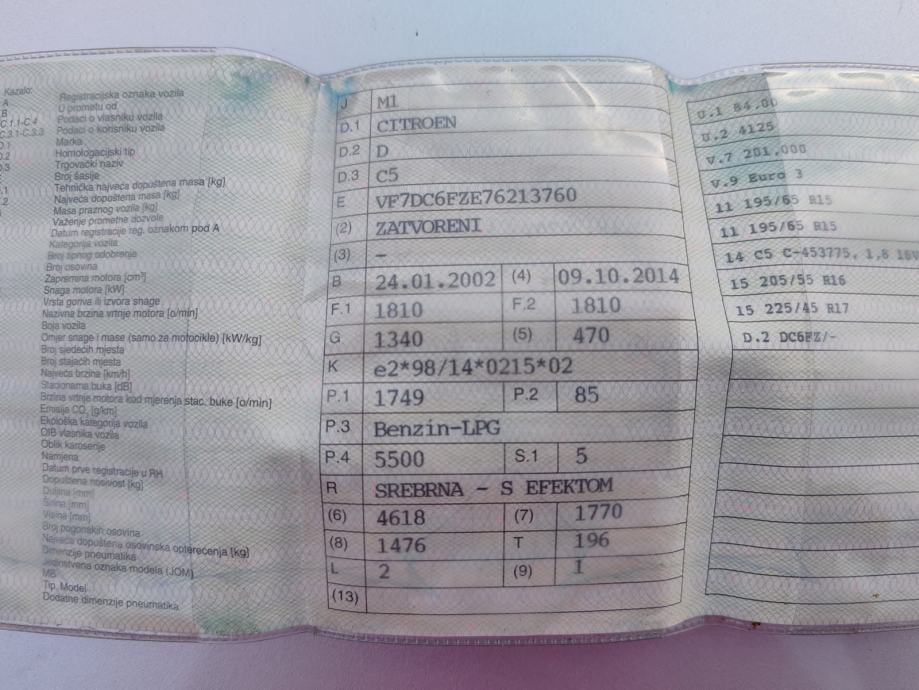 Kazalo:
A Registracijska oznaka vozila
B U prometu od
C.1.1-C.4 Podaci o vlasniku vozila
C.3.1-C.3.3 Podaci o korisniku vozila
D.1 Marka
D.2 Homologacijski tip
D.3 Trgovački naziv
Broj šasije
Tehnička najveća dopuštena masa [kg]
Najveća dopuštena masa [kg]
Masa praznog vozila [kg]
Važenje prometne dozvole
Datum registracije reg. oznakom pod A
Kategorija vozila
Broj tipnog odobrenja
Broj osovina
Zapremina motora [cm³]
Snaga motora [kW]
Vrsta goriva ili izvora snage
Nazivna brzina vrtnje motora [o/min]
Boja vozila
Omjer snage i mase (samo za motocikle) [kW/kg]
Broj sjedećih mjesta
Broj stajaćih mjesta
Najveća brzina [km/h]
Stacionarna buka [dB]
Brzina vrtnje motora kod mjerenja stac. buke [o/min]
Emisija CO₂ [g/km]
Ekološka kategorija vozila
OIB vlasnika vozila
Oblik karoserije
Namjena
Datum prve registracije u RH
Dopuštena nosivost [kg]
Duljina [mm]
Širina [mm]
Visina [mm]
Broj pogonskih osovina
Najveća dopuštena osovinska opterećenja [kg]
Dimenzije pneumatika
Jedinstvena oznaka modela (JOM)
MB
Tip, Model
Dodatne dimenzije pneumatika
J M1
D.1 CITROEN
D.2 D
D.3 C5
E VF7DC6FZE76213760
(2) ZATVORENI
(3) –
B 24.01.2002 (4) 09.10.2014
F.1 1810 F.2 1810
G 1340 (5) 470
K e2*98/14*0215*02
P.1 1749 P.2 85
P.3 Benzin-LPG
P.4 5500 S.1 5
R SREBRNA - S EFEKTOM
(6) 4618 (7) 1770
(8) 1476 T 196
L 2 (9) 1
(13)
U.1 84,00
U.2 4125
V.7 201,000
V.9 Euro 3
11 195/65 R15
11 195/65 R15
14 C5 C-453775, 1,8 16V
15 205/55 R16
15 225/45 R17
D.2 DC6FZ/-